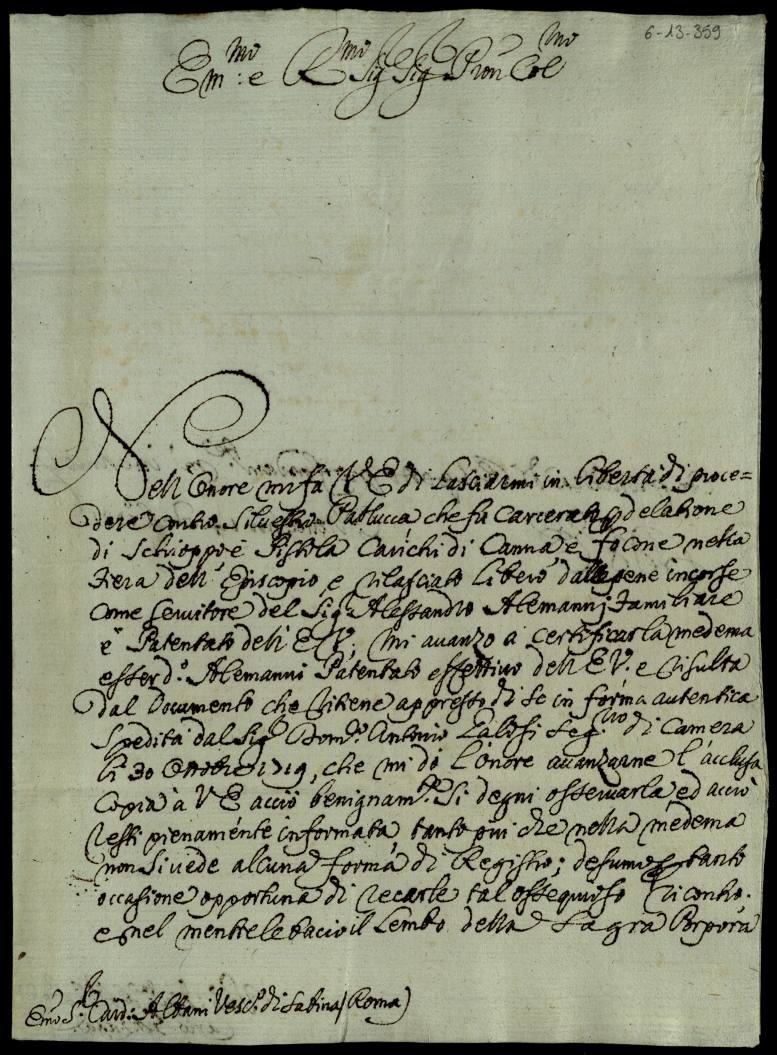 6-13-359
Em:mo e Rmo Sig Sig Pron Col mo
Nell Onore mi fa V E di Lasciarmi in Libertà di proce=
dere contro Silvestro Patlucca che fu Carcerato p delatione
di Schioppo è Pistola Carichi di Canna, è focone nella
Fiera dell' Episcopio e rilasciato Libero dalle pene incorse
Come servitore del Sig.r Alessandro Alemanni familiare
è Patentato dell' E V, mi avanzo a certificarla medema
esser d.o Alemanni Patentato effettivo dell E V. e risulta
dal Documento che ritiene appresso di se in forma autentica
Spedita dal Sig.r Dom.o Antonio Seg.rio di Camera
li 30 Ottobre 1719, che mi dò l'onore avanzarne l'acclusa
Copia à V E acciò benignam.te Si degni osservarla, ed acciò
resti pienamente informata, tanto più che nella medema
non Si vede alcuna forma di Registro; desumo tanto
occasione opportuna di recarle tal ossequioso riscontro.
e nel mentre le bacio il Lembo della Sagra Porpora
Emo S.r Card: Albani Vesc.o di Sabina (Roma)